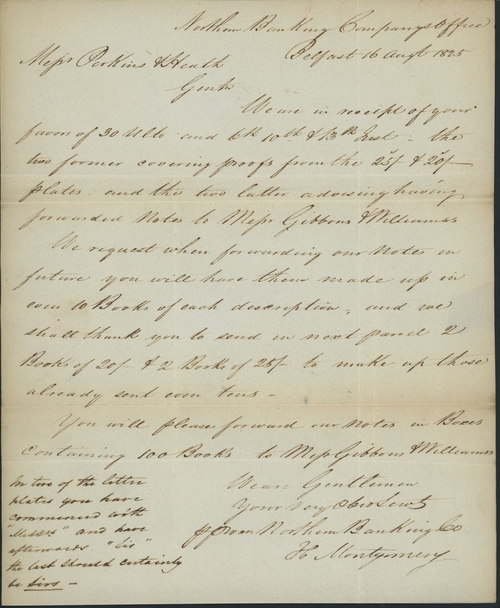 Northern Banking Companys Office
Belfast 16 Augt 1825
Messrs Perkins & Heath
Gentn
We are in receipt of your
favor of 30 Ulto and 6th 10th & 13th Inst - the
two former covering proofs from the 25/ & 20/
plates and the two latter advising having
forwarded Notes to Messrs Gibbons & Williams
We request when forwarding our Notes in
future you will have them made up in
even 10 Books of each description, and we
shall thank you to send in next parcel 2
Books of 20/ & 2 Books of 25/ to make up those
already sent even tens -
You will please forward our Notes in Boxes
containing 100 Books to Messrs Gibbons & Williams
We are Gentlemen
Your very Obed Servts
Northern Banking Co
H Montgomery
In two of the letter
plates you have
commenced with
"Messrs" and have
afterwards "Sir"
the last should certainly
be sirs -